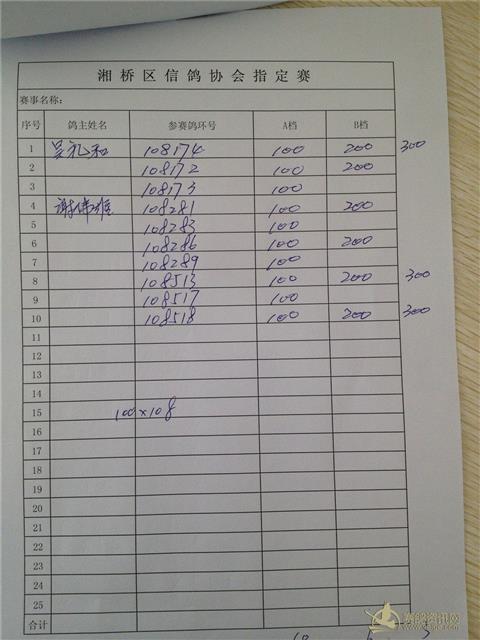 湘桥区信鸽协会指定赛
赛事名称：
序号 鸽主姓名 参赛鸽环号 A档 B档
1 吴礼和 108174 100 200 300
2 108172 100 200
3 108173 100
4 谢伟雄 108281 100 200
5 108283 100
6 108286 100 200
7 108289 100
8 108513 100 200 300
9 108517 100
10 108518 100 200 300
11
12
13
14
15 100×108
16
17
18
19
20
21
22
23
24
25
合计